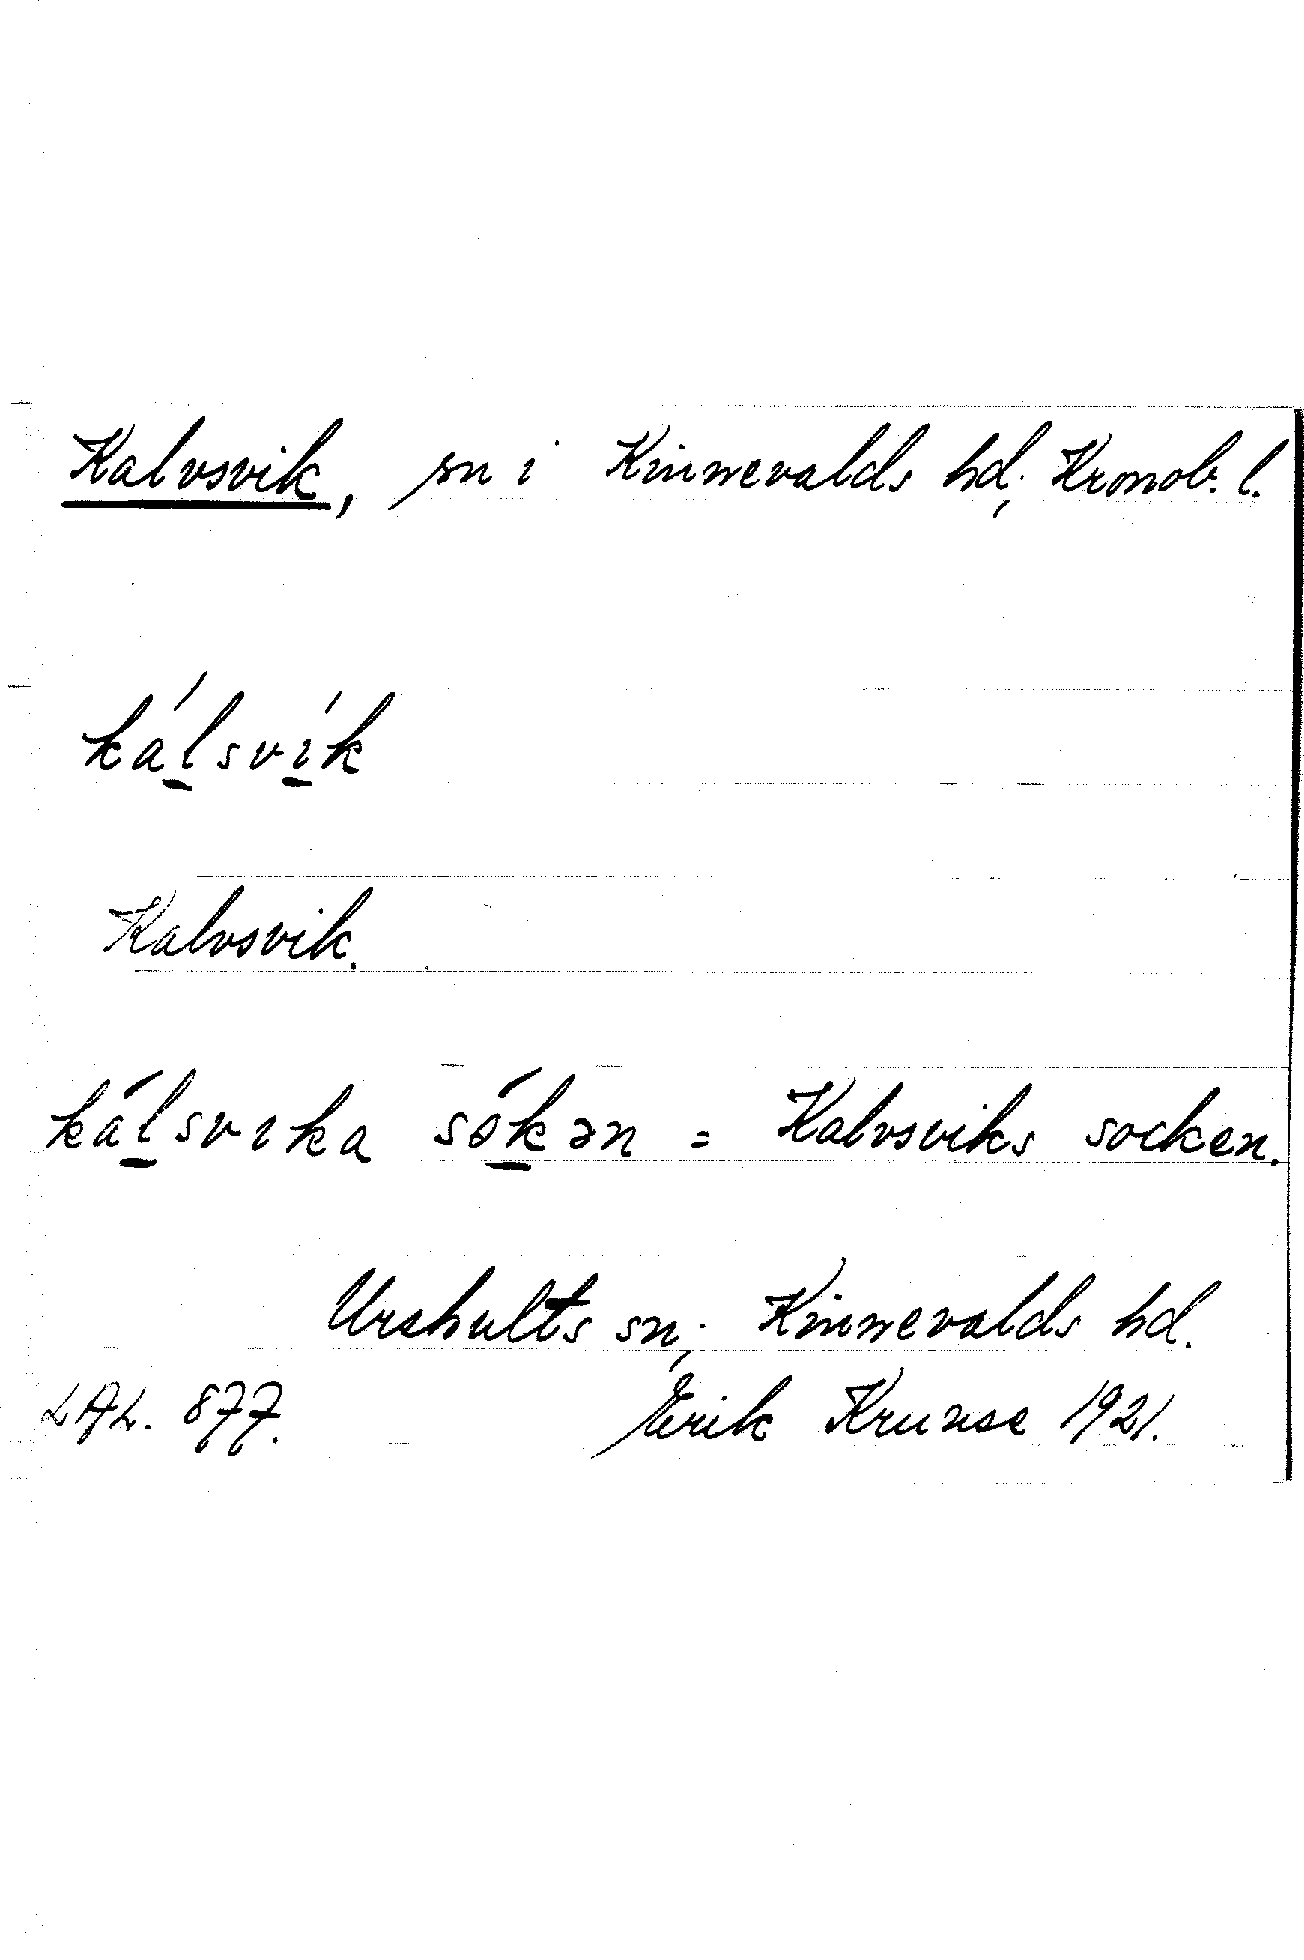 Kalvsvik, sn i Kinnevalds hd; Kronob. l.
ká̱lsví̱k
Kalvsvik.
ká̱lsvıka sóḵən = Kalvsviks socken.
Urshults sn; Kinnevalds hd.
LAL. 877. Erik Kruuse 1921.